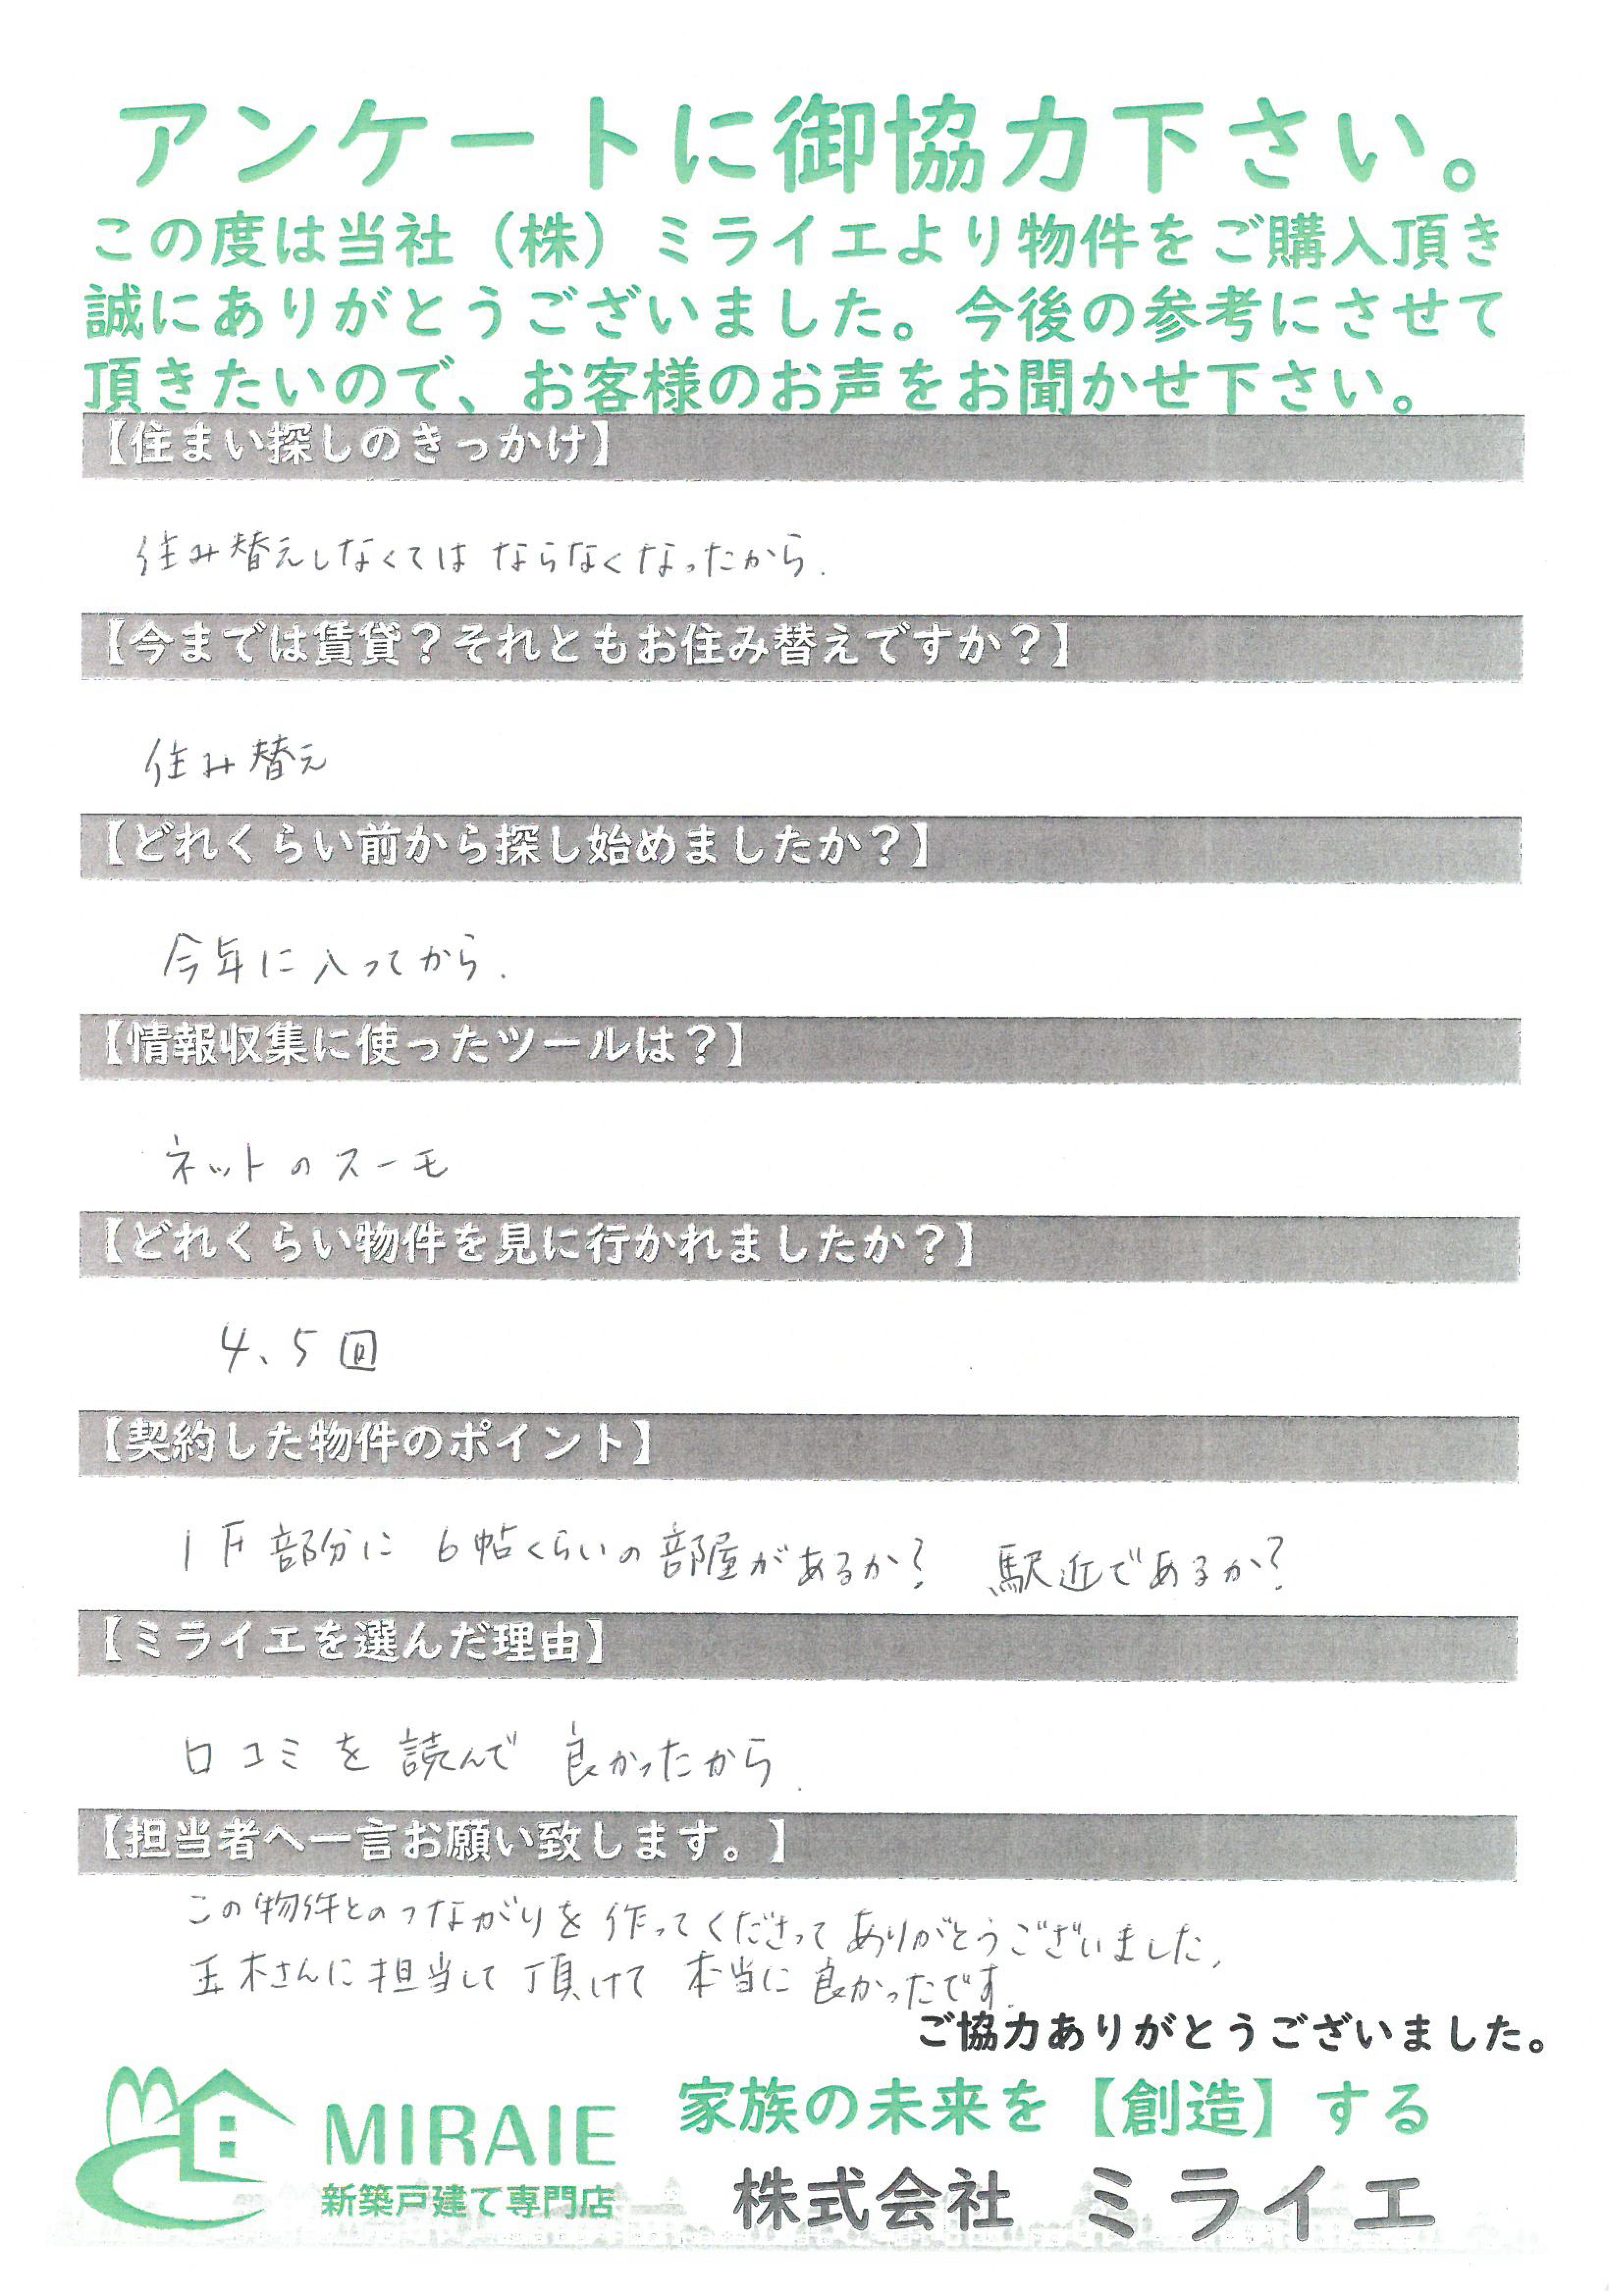 アンケートに御協力下さい。
この度は当社（株）ミライエより物件をご購入頂き
誠にありがとうございました。今後の参考にさせて
頂きたいので、お客様のお声をお聞かせ下さい。
【住まい探しのきっかけ】
住み替えしなくてはならなくなったから.
【今までは賃貸？それともお住み替えですか？】
住み替え
【どれくらい前から探し始めましたか？】
今年に入ってから.
【情報収集に使ったツールは？】
ネットのスーモ
【どれくらい物件を見に行かれましたか？】
4、5回
【契約した物件のポイント】
1F部分に 6帖くらいの部屋があるか? 駅近であるか?
【ミライエを選んだ理由】
口コミを読んで 良かったから.
【担当者へ一言お願い致します。】
この物件とのつながりを作ってくださってありがとうございました.
玉木さんに担当して頂けて 本当に良かったです.
ご協力ありがとうございました。
MIRAIE 家族の未来を【創造】する
新築戸建て専門店 株式会社 ミライエ